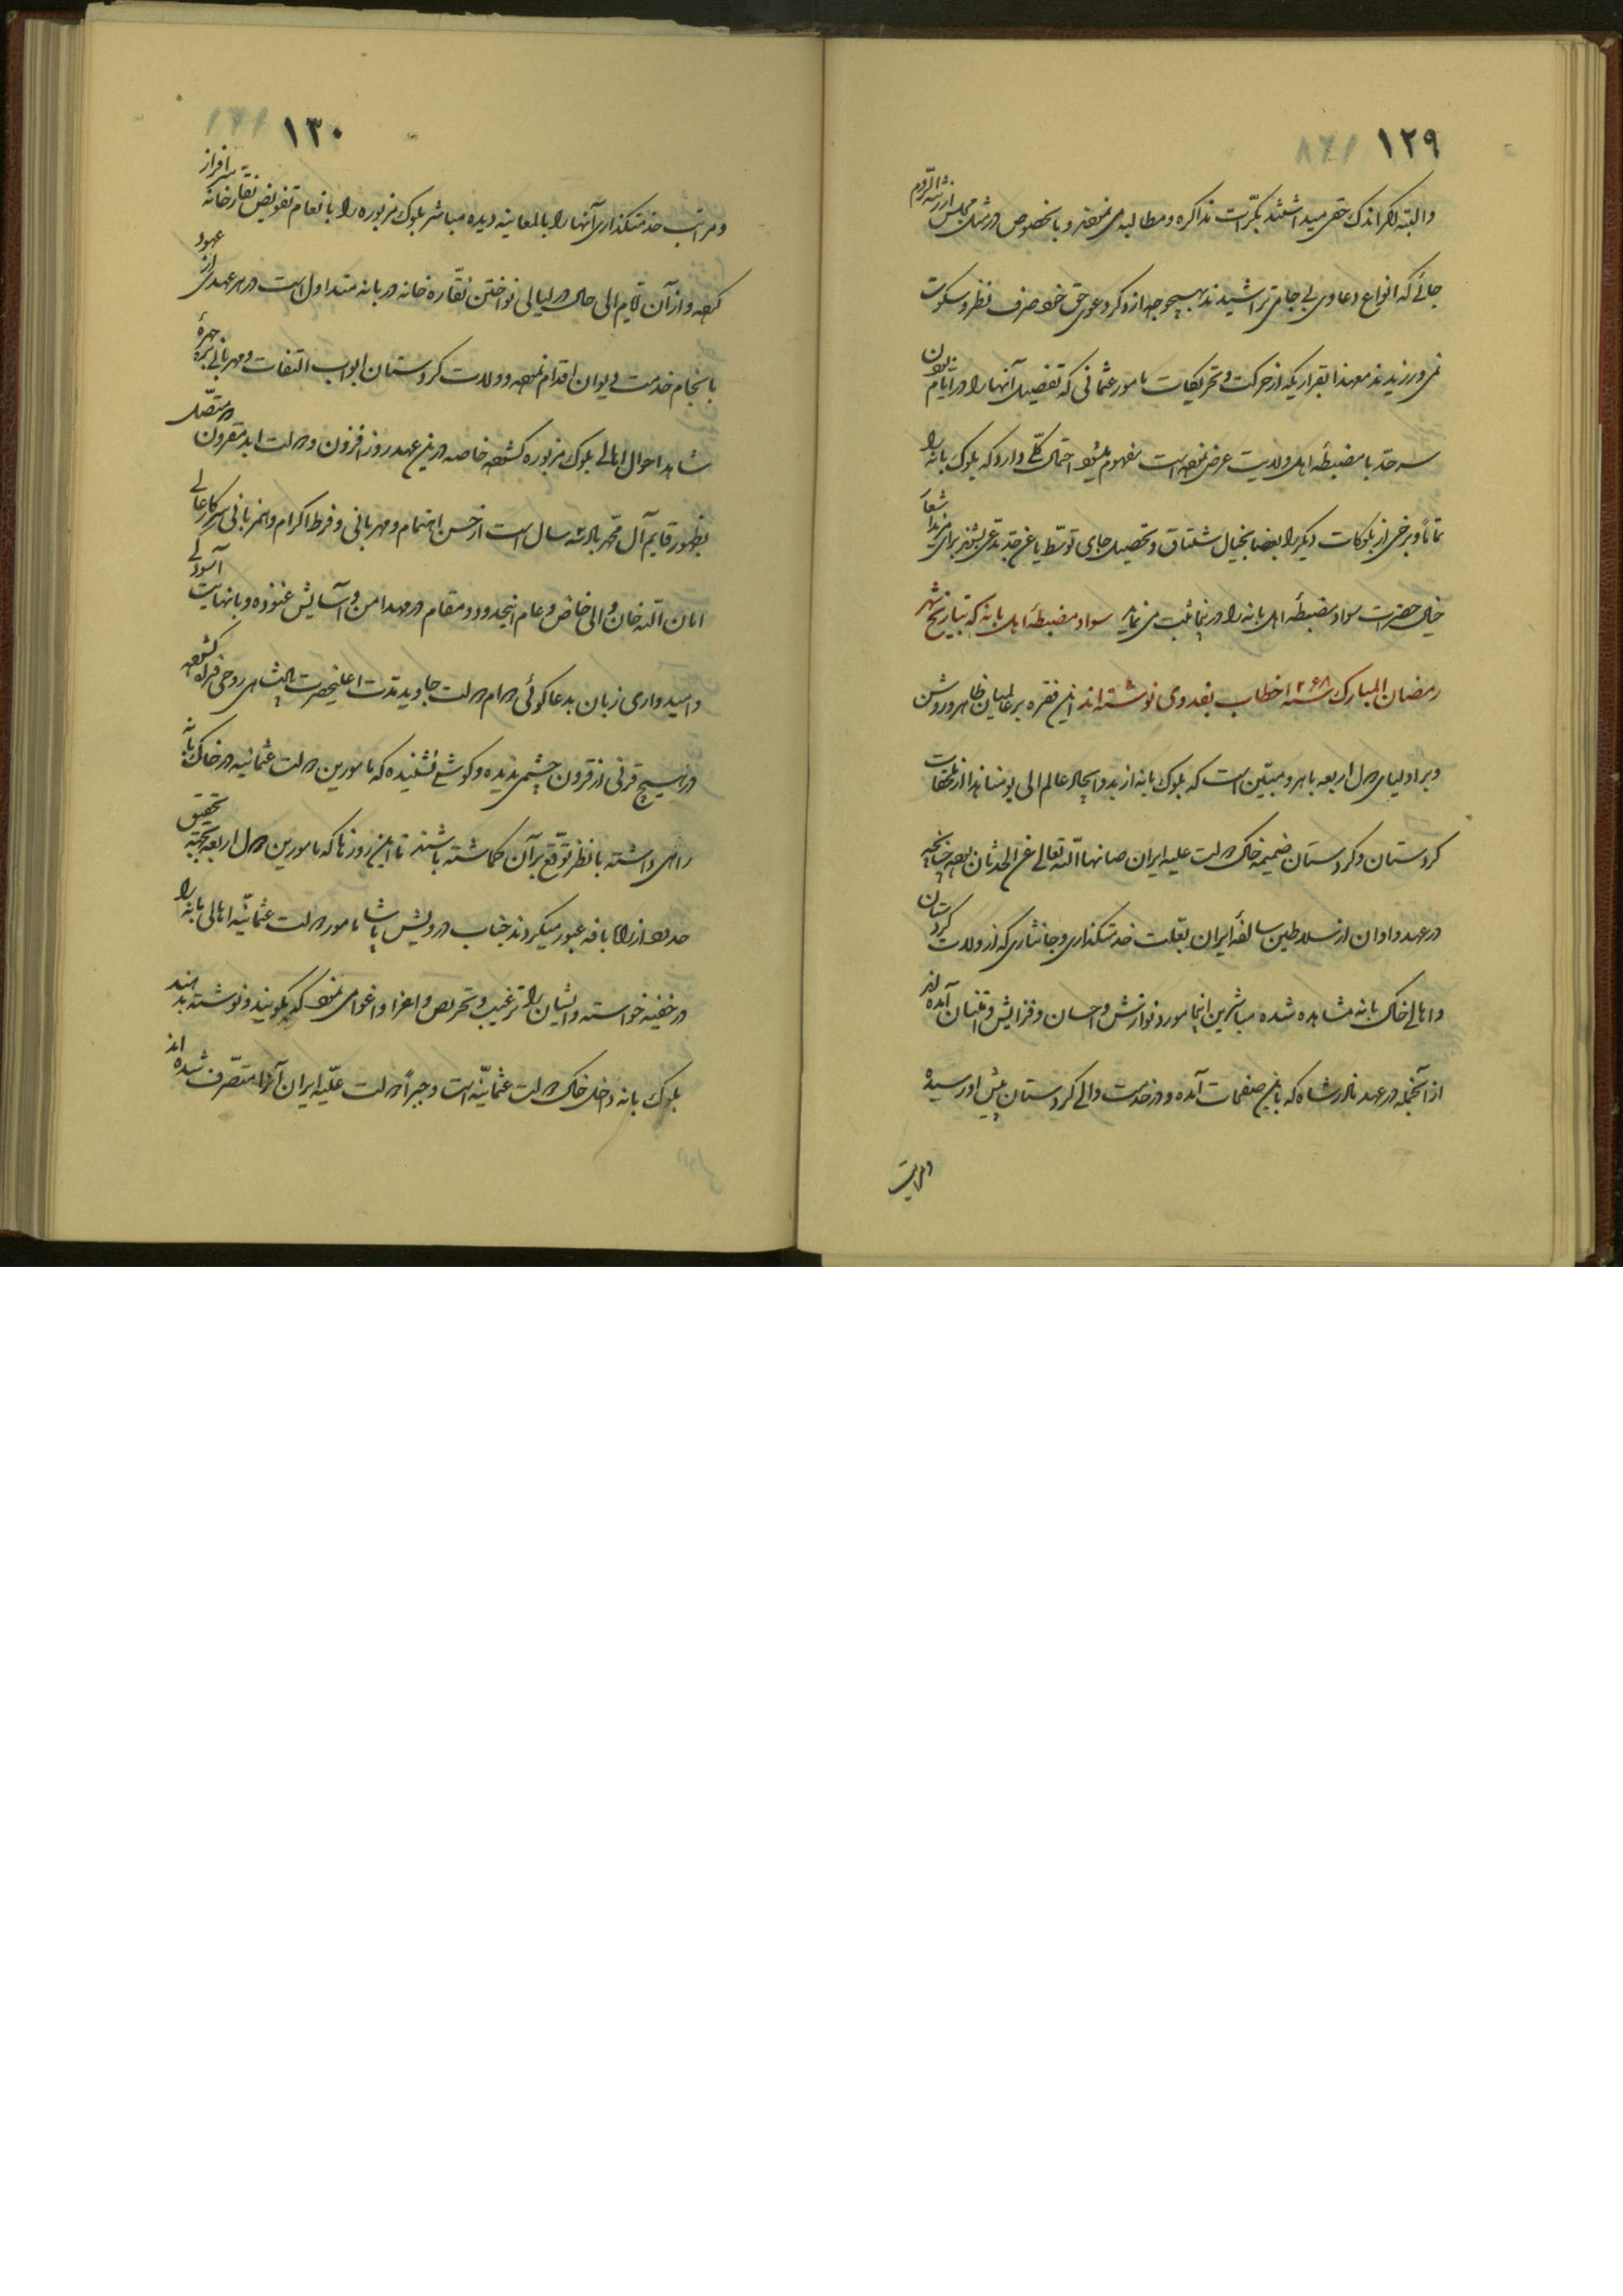 ۱۲۹
والبته اگر اندک حقی میداشتند بکرّات مذاکره و مطالبه می نمودند و بالخصوص در مثل مجلس ارزنة الروم
جائے که انواع دعاوی بی جا می تراشیدند بهیچوجه از ذکر دعوی حق خود صرف نظر و سکوت
نمی ورزیدند معهذا بقراریکه از حرکت و تحریکات مامور عثمانی که تفصیل آنها را در ایام بودن
سرحد با مضبطهٔ اهل ولایت عرض نموده است مفهوم میشود احتمال کلّی دارد که بلوک بانه را
تماماً و برخی از بلوکات دیگر را بعضا بخیال شلتاق و تحصیل جای توسط یا غیر جد مدعی بشوند برای مزید استشعار
خیال حضرات سواد مضبطهٔ اهل بانه را در اینجا ثبت می نماید سواد مضبطهٔ اهل بانه که بتاریخ شهر
رمضان المبارک سنه ۱۲۶۸ خطاب بفدوی نوشته اند این فقره بر عالمیان ظاهر و روشن
و بر اولیای دول اربعه باهر و مبیّن است که بلوک بانه از بدو ایجاد عالم الی یومنا هذا از ملحقات
کردستان و کردستان ضمیمه خاک دولت علیه ایران صانها اللّه تعالی عن الحدثان بوده چنانچه
در عهد و اوان از سلاطین سالفهٔ ایران بعلت خدمتکذاری و جانثاری که از ولات کردستان
و اهالی خاک بانه مشاهده شده مباشرین اینجا مورد نوازش و احسان و فزایش و امتنان آمده اند
از آنجمله در عهد نادر شاه که باین صفحات آمده و در خدمت والی کردستان پیش او رسیده
و مراتب
۱۳۰
و مراتب خدمتکذاری آنها را بالمعاینه دیده مباشر بلوک مزبوره را بانعام تفویض نقاره خانه سرافراز
کرده و از آن ایام الی حال در لیالی نواختن نقّاره خانه در بانه متداول است در هر عهدی از عهود
بانجام خدمت دیوان اقدام نموده و ولات کردستان ابواب التفات و مهربانی بر چهرهٔ
شاهد احوال اهالی بلوک مزبوره گشوده خاصه درین عهد روز افزون و دولت ابد مقرون و متصل
بظهور قایم آل محمد باد سه سال است از حسن اهتمام و مهربانی و فرط اکرام و همزبانی سرکار عالی
امان اللّه خان والی خاص و عام اینحدود و مقام در مهد امن و آسایش غنوده و بانهایت آسودگی
و امیدواری زبان بدعاگوئی دوام دولت جاوید مدت اعلیحضرت پادشاهی روحی فداه گشوده
در هیچ قرنی از قرون چشمی ندیده و گوشی نشنیده که مامورین دولت عثمانیه در خاک بانه
راهی داشته یا نظر توقع بر آن گماشته باشند تا این روزها که مامورین دول اربعه بجهة تحقیق
حدود از راه بانه عبور میکردند جناب درویش پاشا مامور دولت عثمانیّه اهالی بانه را
در خفیه خواسته و ایشان را ترغیب و تحریص و اغرا و اغوا می نمود که بگویند و نوشته بدهند
بلوک بانه داخل خاک دولت عثمانیّه است و جبراً دولت علیّه ایران آنرا متصّرف شده اند